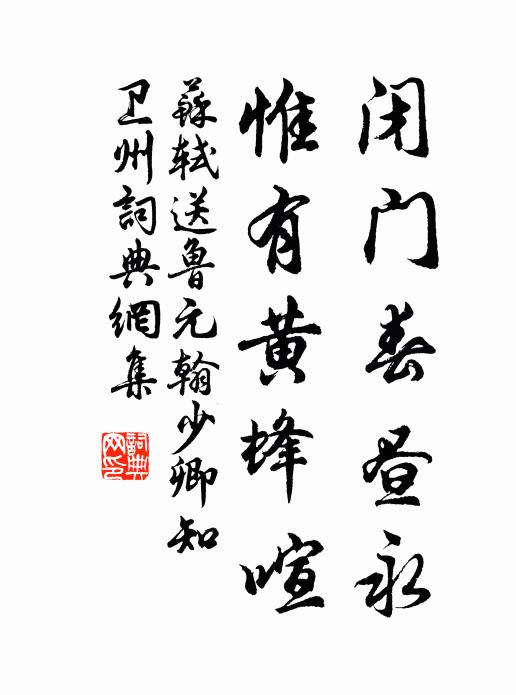 闭门春昼永
惟有黄蜂喧
蘇轼送鲁元翰少卿知
卫州詞典網集
詞典网印